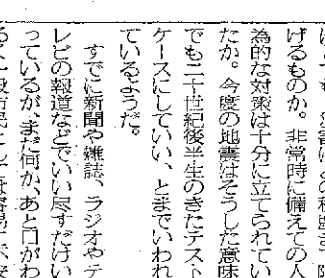 げるものか。非常時に備えての人
為的な対策は十分に立てられてい
たか。今度の地震はそうした意味
でも二十世紀後半生のきたテスト
ケースにしていい、とまでいわれ
ているようだ。
すでに新聞や雑誌、ラジオやテ
レビの報道などでいい尽すだけい
っているが、まだ何か、あと口がわ